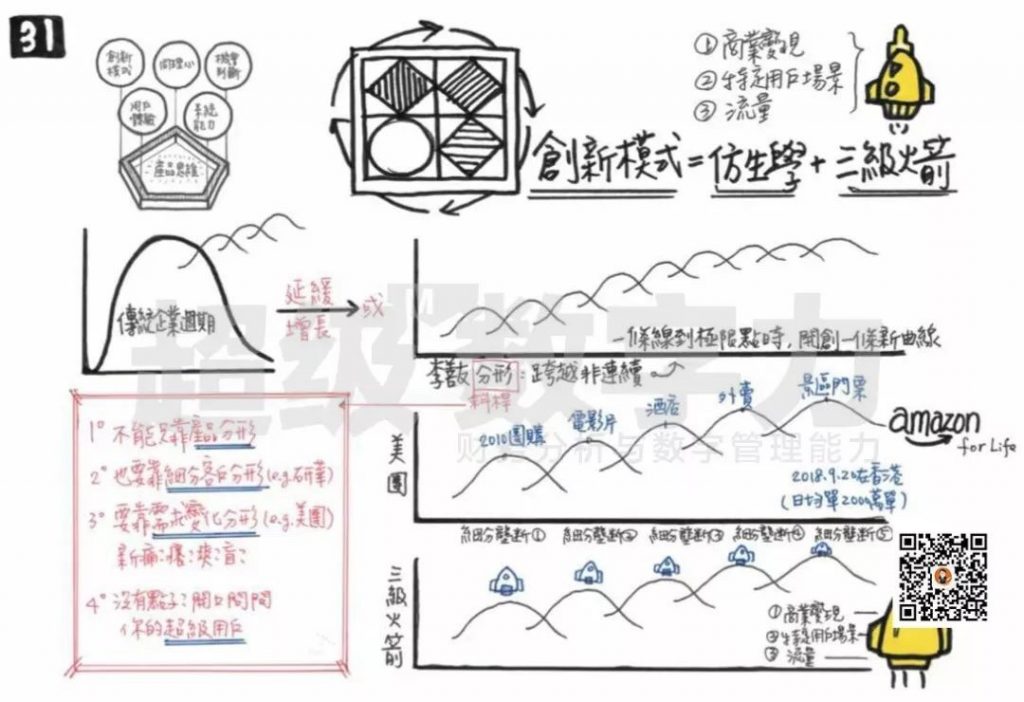 31
創新模式
同理心
機會判斷
用戶體驗
系統能力
產品思維
① 商業變現
② 特定用戶場景
③ 流量
創新模式=仿生學+三級火箭
傳統企業週期
延緩
增長
或
一條線到極限點時,開創一條新曲線
分形:跨越非連續
1° 不能只靠產品分形
2° 也要靠細分客戶分形(e.g.研華)
3° 要靠需求變化分形(e.g.美團)
4° 沒有點子?開口問問
你的超級用戶
美團
2010團購
電影片
酒店
外賣
景區門票
amazon
for Life
2018.9.20在香港
(日均單2000萬單)
細分壟斷①
細分壟斷②
細分壟斷③
細分壟斷④
細分壟斷⑤
三級火箭
①商業變現
②特定用戶場景
③流量
超级数字力
财务分析与数字管理能力